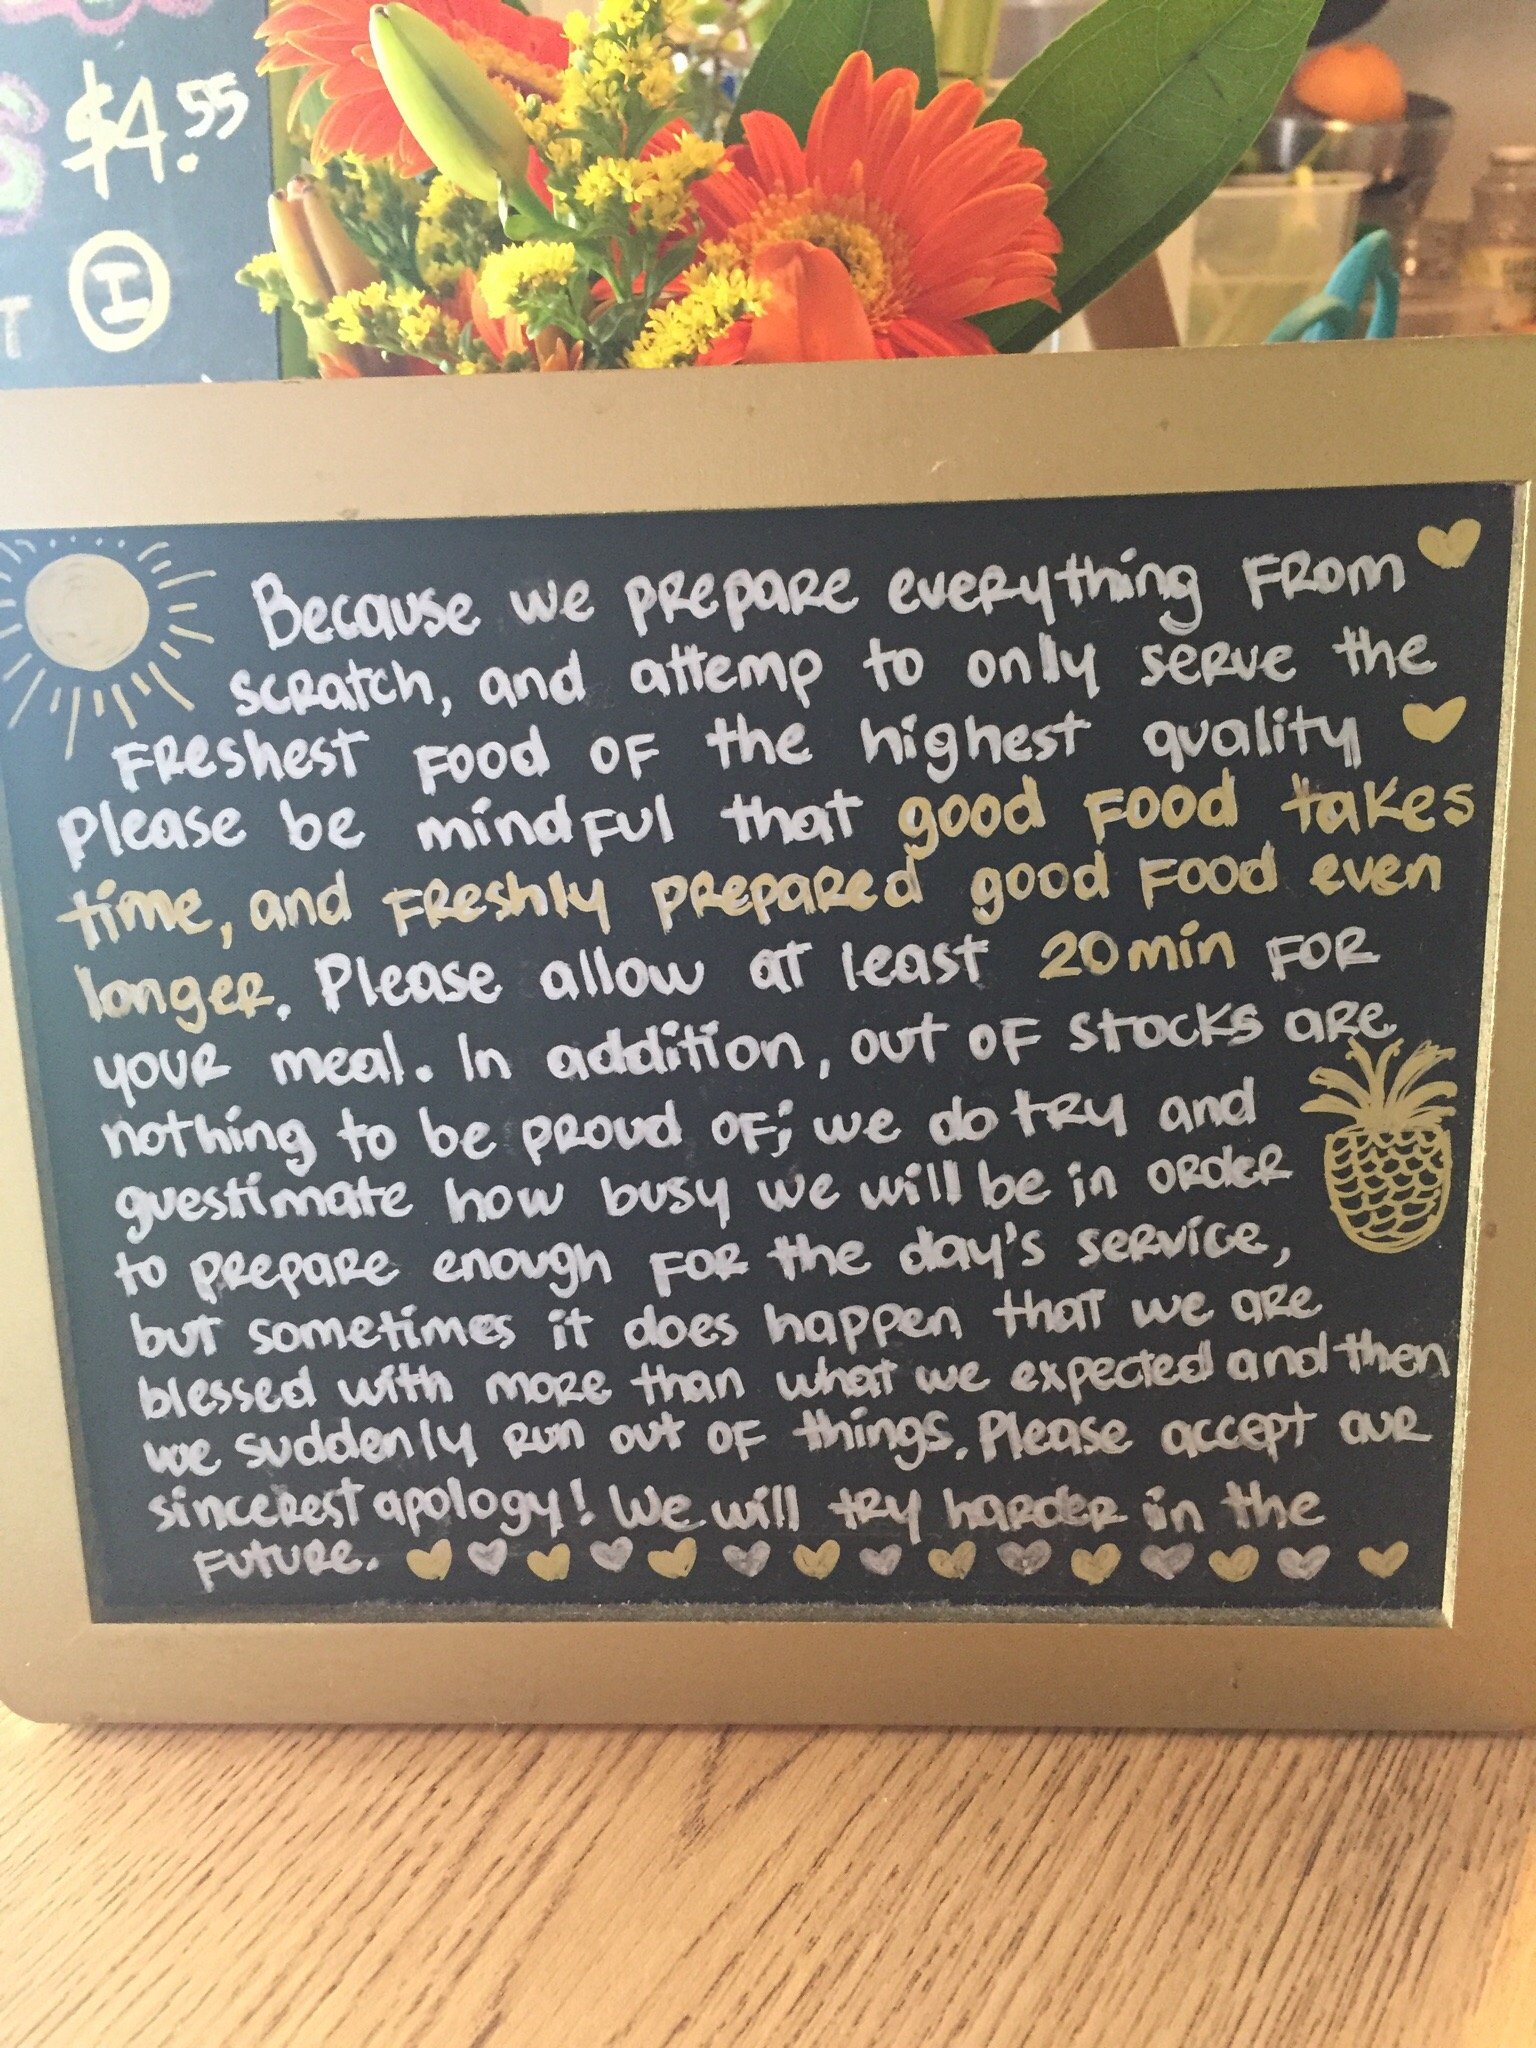 $4.55
T I
Because we prepare everything from
scratch, and attemp to only serve the
freshest food of the highest quality
please be mindful that good food takes
time, and freshly prepared good food even
longer. Please allow at least 20min for
your meal. In addition, out of stocks are
nothing to be proud of; we do try and
guestimate how busy we will be in order
to prepare enough for the day's service,
but sometimes it does happen that we are
blessed with more than what we expected and then
we suddenly run out of things. Please accept our
sincerest apology! We will try harder in the
future.